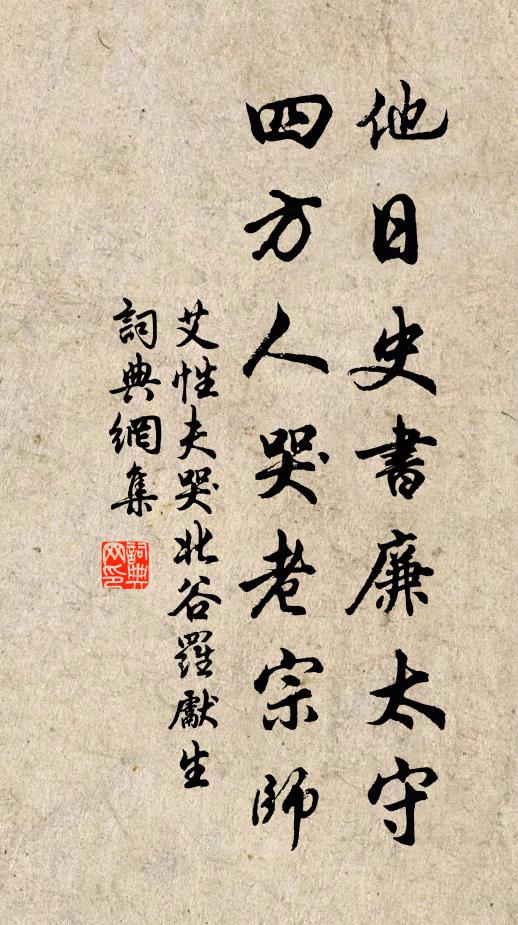 他日史書廉太守
四方人哭老宗師
艾性夫哭北谷羅獻生
詞典網集
詞典
网印